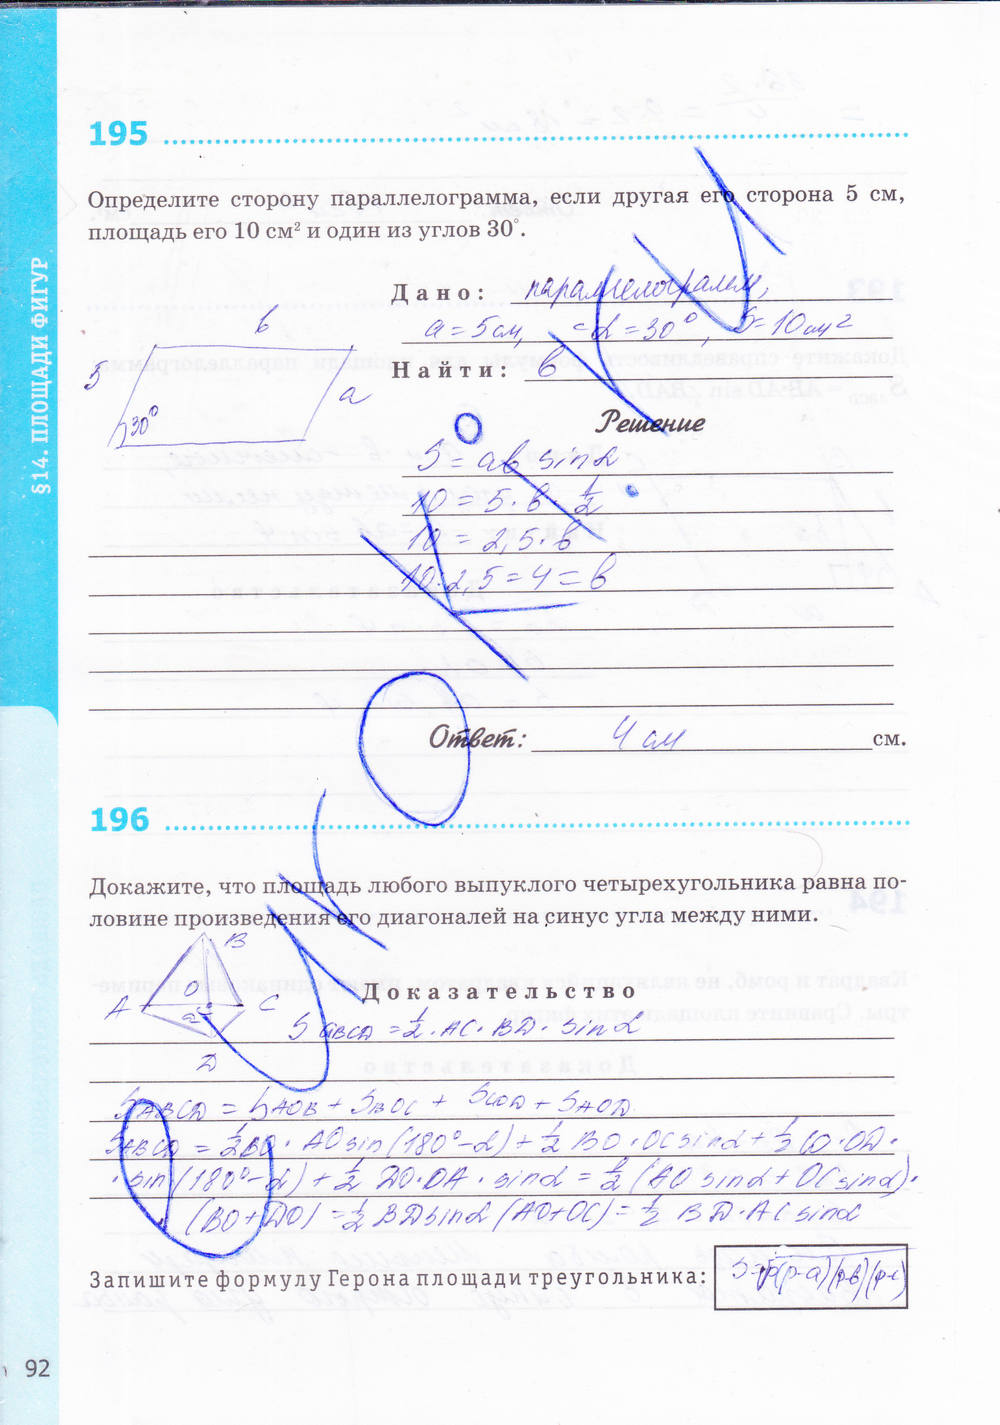 195
Определите сторону параллелограмма, если другая его сторона 5 см,
площадь его 10 см² и один из углов 30°.
Дано: параллелограмм,
a = 5 см, ∠α = 30°, S = 10 см²
Найти: в
5
в
a
30°
Решение
S = ab sin α
10 = 5 · в · 1/2
10 = 2,5 · в
10 : 2,5 = 4 = в
Ответ: 4 см см.
196
Докажите, что площадь любого выпуклого четырехугольника равна по-
ловине произведения его диагоналей на синус угла между ними.
A
B
O
C
α
D
Доказательство
S ABCD = 1/2 · AC · BD · sin α
SABCD = SAOB + SBOC + SCOD + SAOD
SABCD = 1/2 BO · AO sin (180° - α) + 1/2 BO · OC sin α + 1/2 CO · OD ·
· sin (180° - α) + 1/2 DO · OA · sin α = 1/2 (AO sin α + OC sin α) ·
(BO + DO) = 1/2 BD sin α (AO + OC) = 1/2 BD · AC sin α
Запишите формулу Герона площади треугольника: S = √p(p-a)(p-в)(p-c)
§14. ПЛОЩАДИ ФИГУР
92